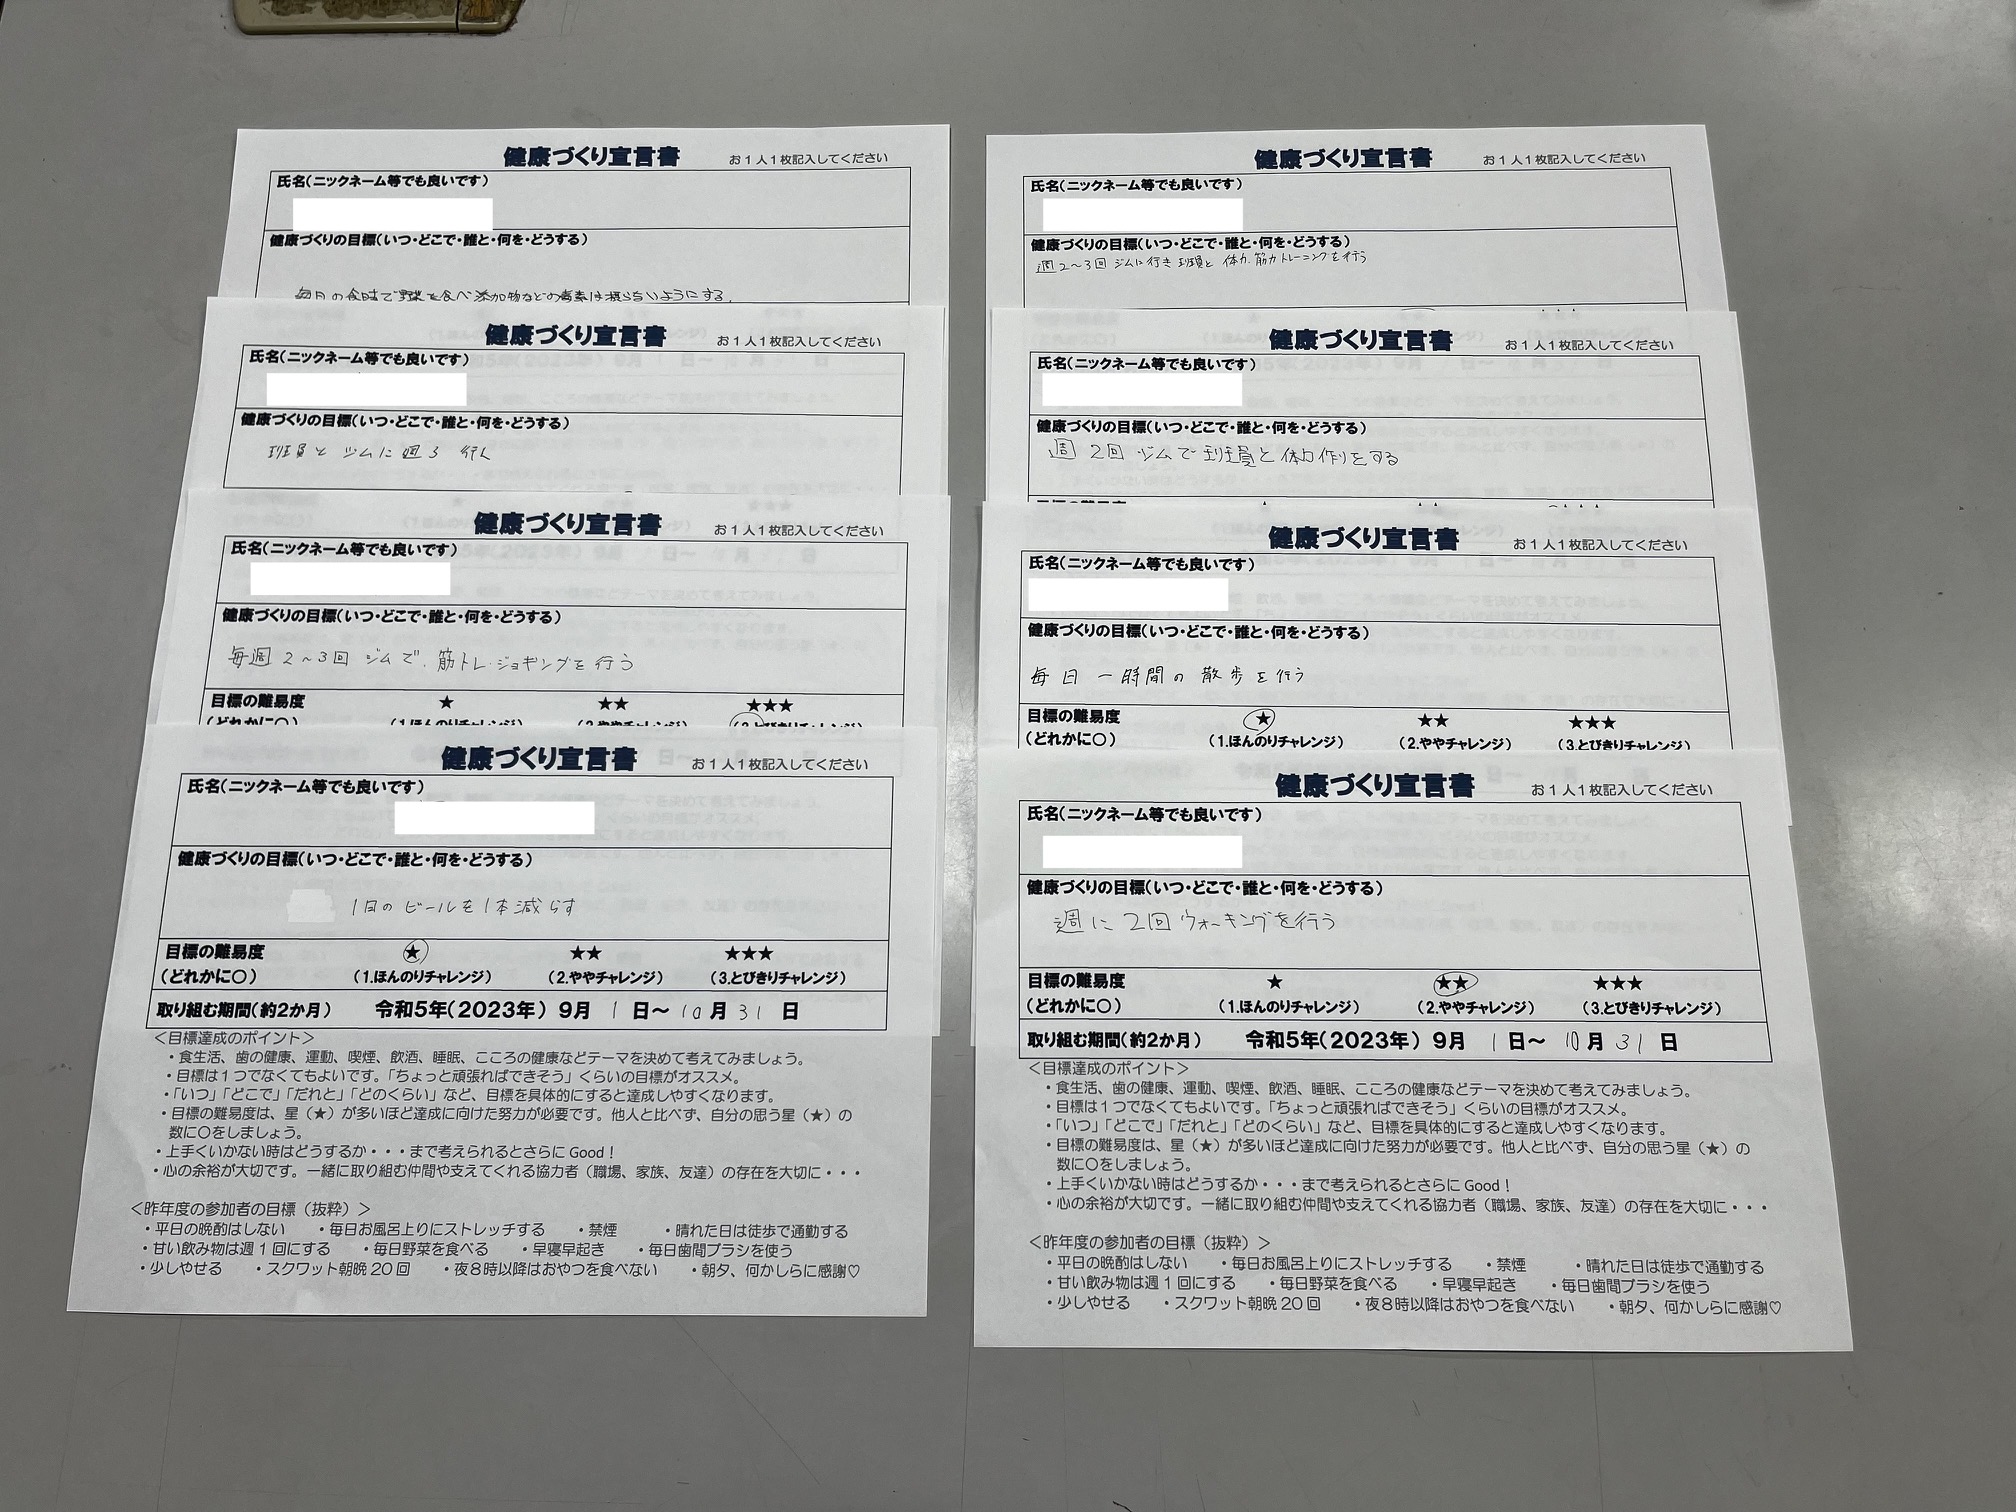 健康づくり宣言書 お1人1枚記入してください
氏名(ニックネーム等でも良いです)
健康づくりの目標(いつ・どこで・誰と・何を・どうする)
毎日の食時で野菜を食べ添加物などの毒素は摂らないようにする。
健康づくり宣言書 お1人1枚記入してください
氏名(ニックネーム等でも良いです)
健康づくりの目標(いつ・どこで・誰と・何を・どうする)
班員とジムに週3 行く
健康づくり宣言書 お1人1枚記入してください
氏名(ニックネーム等でも良いです)
健康づくりの目標(いつ・どこで・誰と・何を・どうする)
毎週2~3回 ジムで、筋トレ・ジョギングを行う
目標の難易度 ★ ★★ ★★★
(どれかに○) (1.ほんのりチャレンジ) (2.ややチャレンジ) (3.とびきりチャレンジ)
健康づくり宣言書 お1人1枚記入してください
氏名(ニックネーム等でも良いです)
健康づくりの目標(いつ・どこで・誰と・何を・どうする)
1日のビールを1本減らす
目標の難易度 ★ ★★ ★★★
(どれかに○) (1.ほんのりチャレンジ) (2.ややチャレンジ) (3.とびきりチャレンジ)
取り組む期間(約2か月) 令和5年(2023年) 9月 1 日~ 10 月 31 日
<目標達成のポイント>
・食生活、歯の健康、運動、喫煙、飲酒、睡眠、こころの健康などテーマを決めて考えてみましょう。
・目標は1つでなくてもよいです。「ちょっと頑張ればできそう」くらいの目標がオススメ。
・「いつ」「どこで」「だれと」「どのくらい」など、目標を具体的にすると達成しやすくなります。
・目標の難易度は、星(★)が多いほど達成に向けた努力が必要です。他人と比べず、自分の思う星(★)の
数に○をしましょう。
・上手くいかない時はどうするか・・・まで考えられるとさらにGood!
・心の余裕が大切です。一緒に取り組む仲間や支えてくれる協力者(職場、家族、友達)の存在を大切に・・・
<昨年度の参加者の目標(抜粋)>
・平日の晩酌はしない ・毎日お風呂上りにストレッチする ・禁煙 ・晴れた日は徒歩で通勤する
・甘い飲み物は週1回にする ・毎日野菜を食べる ・早寝早起き ・毎日歯間ブラシを使う
・少しやせる ・スクワット朝晩20回 ・夜8時以降はおやつを食べない ・朝夕、何かしらに感謝♡
健康づくり宣言書 お1人1枚記入してください
氏名(ニックネーム等でも良いです)
健康づくりの目標(いつ・どこで・誰と・何を・どうする)
週2~3回 ジムに行き 班員と 体力、筋力トレーニングを行う
健康づくり宣言書 お1人1枚記入してください
氏名(ニックネーム等でも良いです)
健康づくりの目標(いつ・どこで・誰と・何を・どうする)
週 2回 ジムで 班員と 体力作りをする
健康づくり宣言書 お1人1枚記入してください
氏名(ニックネーム等でも良いです)
健康づくりの目標(いつ・どこで・誰と・何を・どうする)
毎日 一時間の 散歩を行う
目標の難易度 ★ ★★ ★★★
(どれかに○) (1.ほんのりチャレンジ) (2.ややチャレンジ) (3.とびきりチャレンジ)
健康づくり宣言書 お1人1枚記入してください
氏名(ニックネーム等でも良いです)
健康づくりの目標(いつ・どこで・誰と・何を・どうする)
週に2回ウォーキングを行う
目標の難易度 ★ ★★ ★★★
(どれかに○) (1.ほんのりチャレンジ) (2.ややチャレンジ) (3.とびきりチャレンジ)
取り組む期間(約2か月) 令和5年(2023年) 9月 1 日~ 10 月 31 日
<目標達成のポイント>
・食生活、歯の健康、運動、喫煙、飲酒、睡眠、こころの健康などテーマを決めて考えてみましょう。
・目標は1つでなくてもよいです。「ちょっと頑張ればできそう」くらいの目標がオススメ。
・「いつ」「どこで」「だれと」「どのくらい」など、目標を具体的にすると達成しやすくなります。
・目標の難易度は、星(★)が多いほど達成に向けた努力が必要です。他人と比べず、自分の思う星(★)の
数に○をしましょう。
・上手くいかない時はどうするか・・・まで考えられるとさらにGood!
・心の余裕が大切です。一緒に取り組む仲間や支えてくれる協力者(職場、家族、友達)の存在を大切に・・・
<昨年度の参加者の目標(抜粋)>
・平日の晩酌はしない ・毎日お風呂上りにストレッチする ・禁煙 ・晴れた日は徒歩で通勤する
・甘い飲み物は週1回にする ・毎日野菜を食べる ・早寝早起き ・毎日歯間ブラシを使う
・少しやせる ・スクワット朝晩20回 ・夜8時以降はおやつを食べない ・朝夕、何かしらに感謝♡